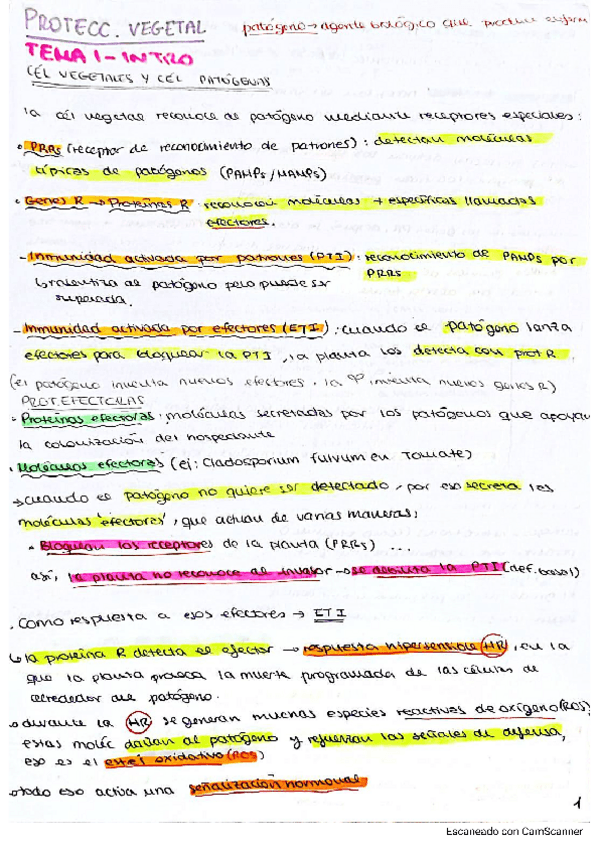 PROTECC. VEGETAL
patógeno → agente biológico que produce enferm
TEMA 1 - INTRO
CÉL VEGETALES Y CÉL PATÓGENAS
la cél vegetal reconoce al patógeno mediante receptores especiales:
• PRRs (receptor de reconocimiento de patrones): detectan moléculas
típicas de patógenos (PAMPs/MAMPs)
• Genes R → Proteínas R: reconocen moléculas + específicas llamadas
efectores.
- Inmunidad activada por patrones (PTI): reconocimiento de PAMPs por
PRRs
↳ ralentiza al patógeno pero puede ser
superada.
- Inmunidad activada por efectores (ETI): cuando el patógeno lanza
efectores para bloquear la PTI, la planta los detecta con prot R.
(el patógeno inventa nuevos efectores, la inventa nuevos genes R)
PROT. EFECTORAS
• Proteínas efectoras: moléculas secretadas por los patógenos que apoyan
la colonización del hospedante
• Moléculas efectoras (ej: Cladosporium fulvum en Tomate)
→ cuando el patógeno no quiere ser detectado, por eso secreta las
moléculas 'efectores', que actúan de varias maneras:
• Bloquean los receptores de la planta (PRRs) ...
así, la planta no reconoce al invasor → se debilita la PTI (def. basal)
. Como respuesta a esos efectores → ETI
↳ la proteína R detecta el efector → respuesta hipersensible HR, en la
que la planta provoca la muerte programada de las células de
alrededor del patógeno.
→ durante la HR se generan muchas especies reactivas de oxígeno (ROS)
estas moléc dañan al patógeno y refuerzan las señales de defensa,
eso es el estrel oxidativo (ROS)
→ todo eso activa una señalización hormonal
1
Escaneado con CamScanner